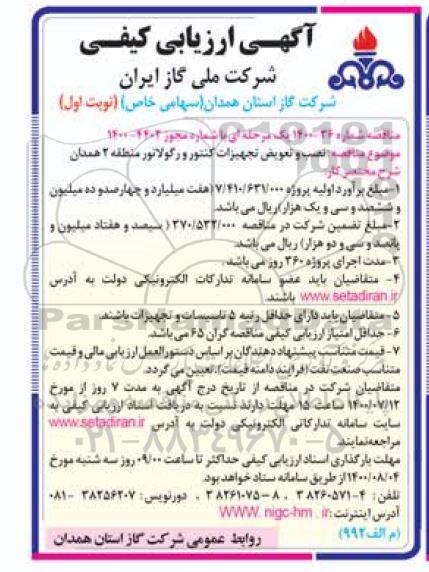 آگهـی ارزیابی کیفـی
شرکت ملی گاز ایران
شرکت گاز استان همدان(سهامی خاص) (نوبت اول)
مناقصه شماره ۳۶-۱۴۰۰ یک مرحله ای با شماره مجوز ۴۴۰۲-۱۴۰۰
موضوع مناقصه: نصب و تعویض تجهیزات کنتور و رگولاتور منطقه ۲ همدان
شرح مختصر کار:
۱-مبلغ برآورد اولیه پروژه ۷/۴۱۰/۶۳۱/۰۰۰(هفت میلیارد و چهارصدو ده میلیون
و ششصد و سی و یک هزار) ریال می باشد.
۲-مبلغ تضمین شرکت در مناقصه ۳۷۰/۵۳۲/۰۰۰ ( سیصد و هفتاد میلیون و
پانصد و سی و دو هزار) ریال می باشد.
۳-مدت اجرای پروژه ۳۶۰ روز می باشد.
۴- متقاضیان باید عضو سامانه تدارکات الکترونیکی دولت به آدرس
www.setadiran.ir باشند.
۵- متقاضیان باید دارای حداقل رتبه ۵ تاسیسات و تجهیزات باشند.
۶- حداقل امتیاز ارزیابی کیفی مناقصه گران ۶۵ می باشد.
۷- قیمت متناسب پیشنهاد دهندگان بر اساس دستورالعمل ارزیابی مالی و قیمت
متناسب صنعت نفت (فرایند دامنه قیمت)، تعیین می گردد.
متقاضیان شرکت در مناقصه از تاریخ درج آگهی به مدت ۷ روز از مورخ
۱۴۰۰/۰۷/۱۳ ساعت ۱۵ مهلت دارند نسبت به دریافت اسناد ارزیابی کیفی به
سایت سامانه تدارکاتی الکترونیکی دولت به آدرس www.setadiran.ir
مراجعه نمایند.
مهلت بارگذاری اسناد ارزیابی کیفی حداکثر تا ساعت ۰۹/۰۰ روز سه شنبه مورخ
۱۴۰۰/۰۸/۰۴ از طریق سامانه ستاد خواهد بود.
تلفن: ۴-۳۸۲۶۰۵۷۱ ، ۸-۳۸۲۶۱۰۷۵ ، دورنویس: ۳۸۲۵۶۲۰۷ -۰۸۱
آدرس اینترنت: WWW. nigc-hm . ir
(م الف ۹۹۲)
روابط عمومی شرکت گاز استان همدان
۰۲۱-۸۸۳۴۹۶۷۰-۵